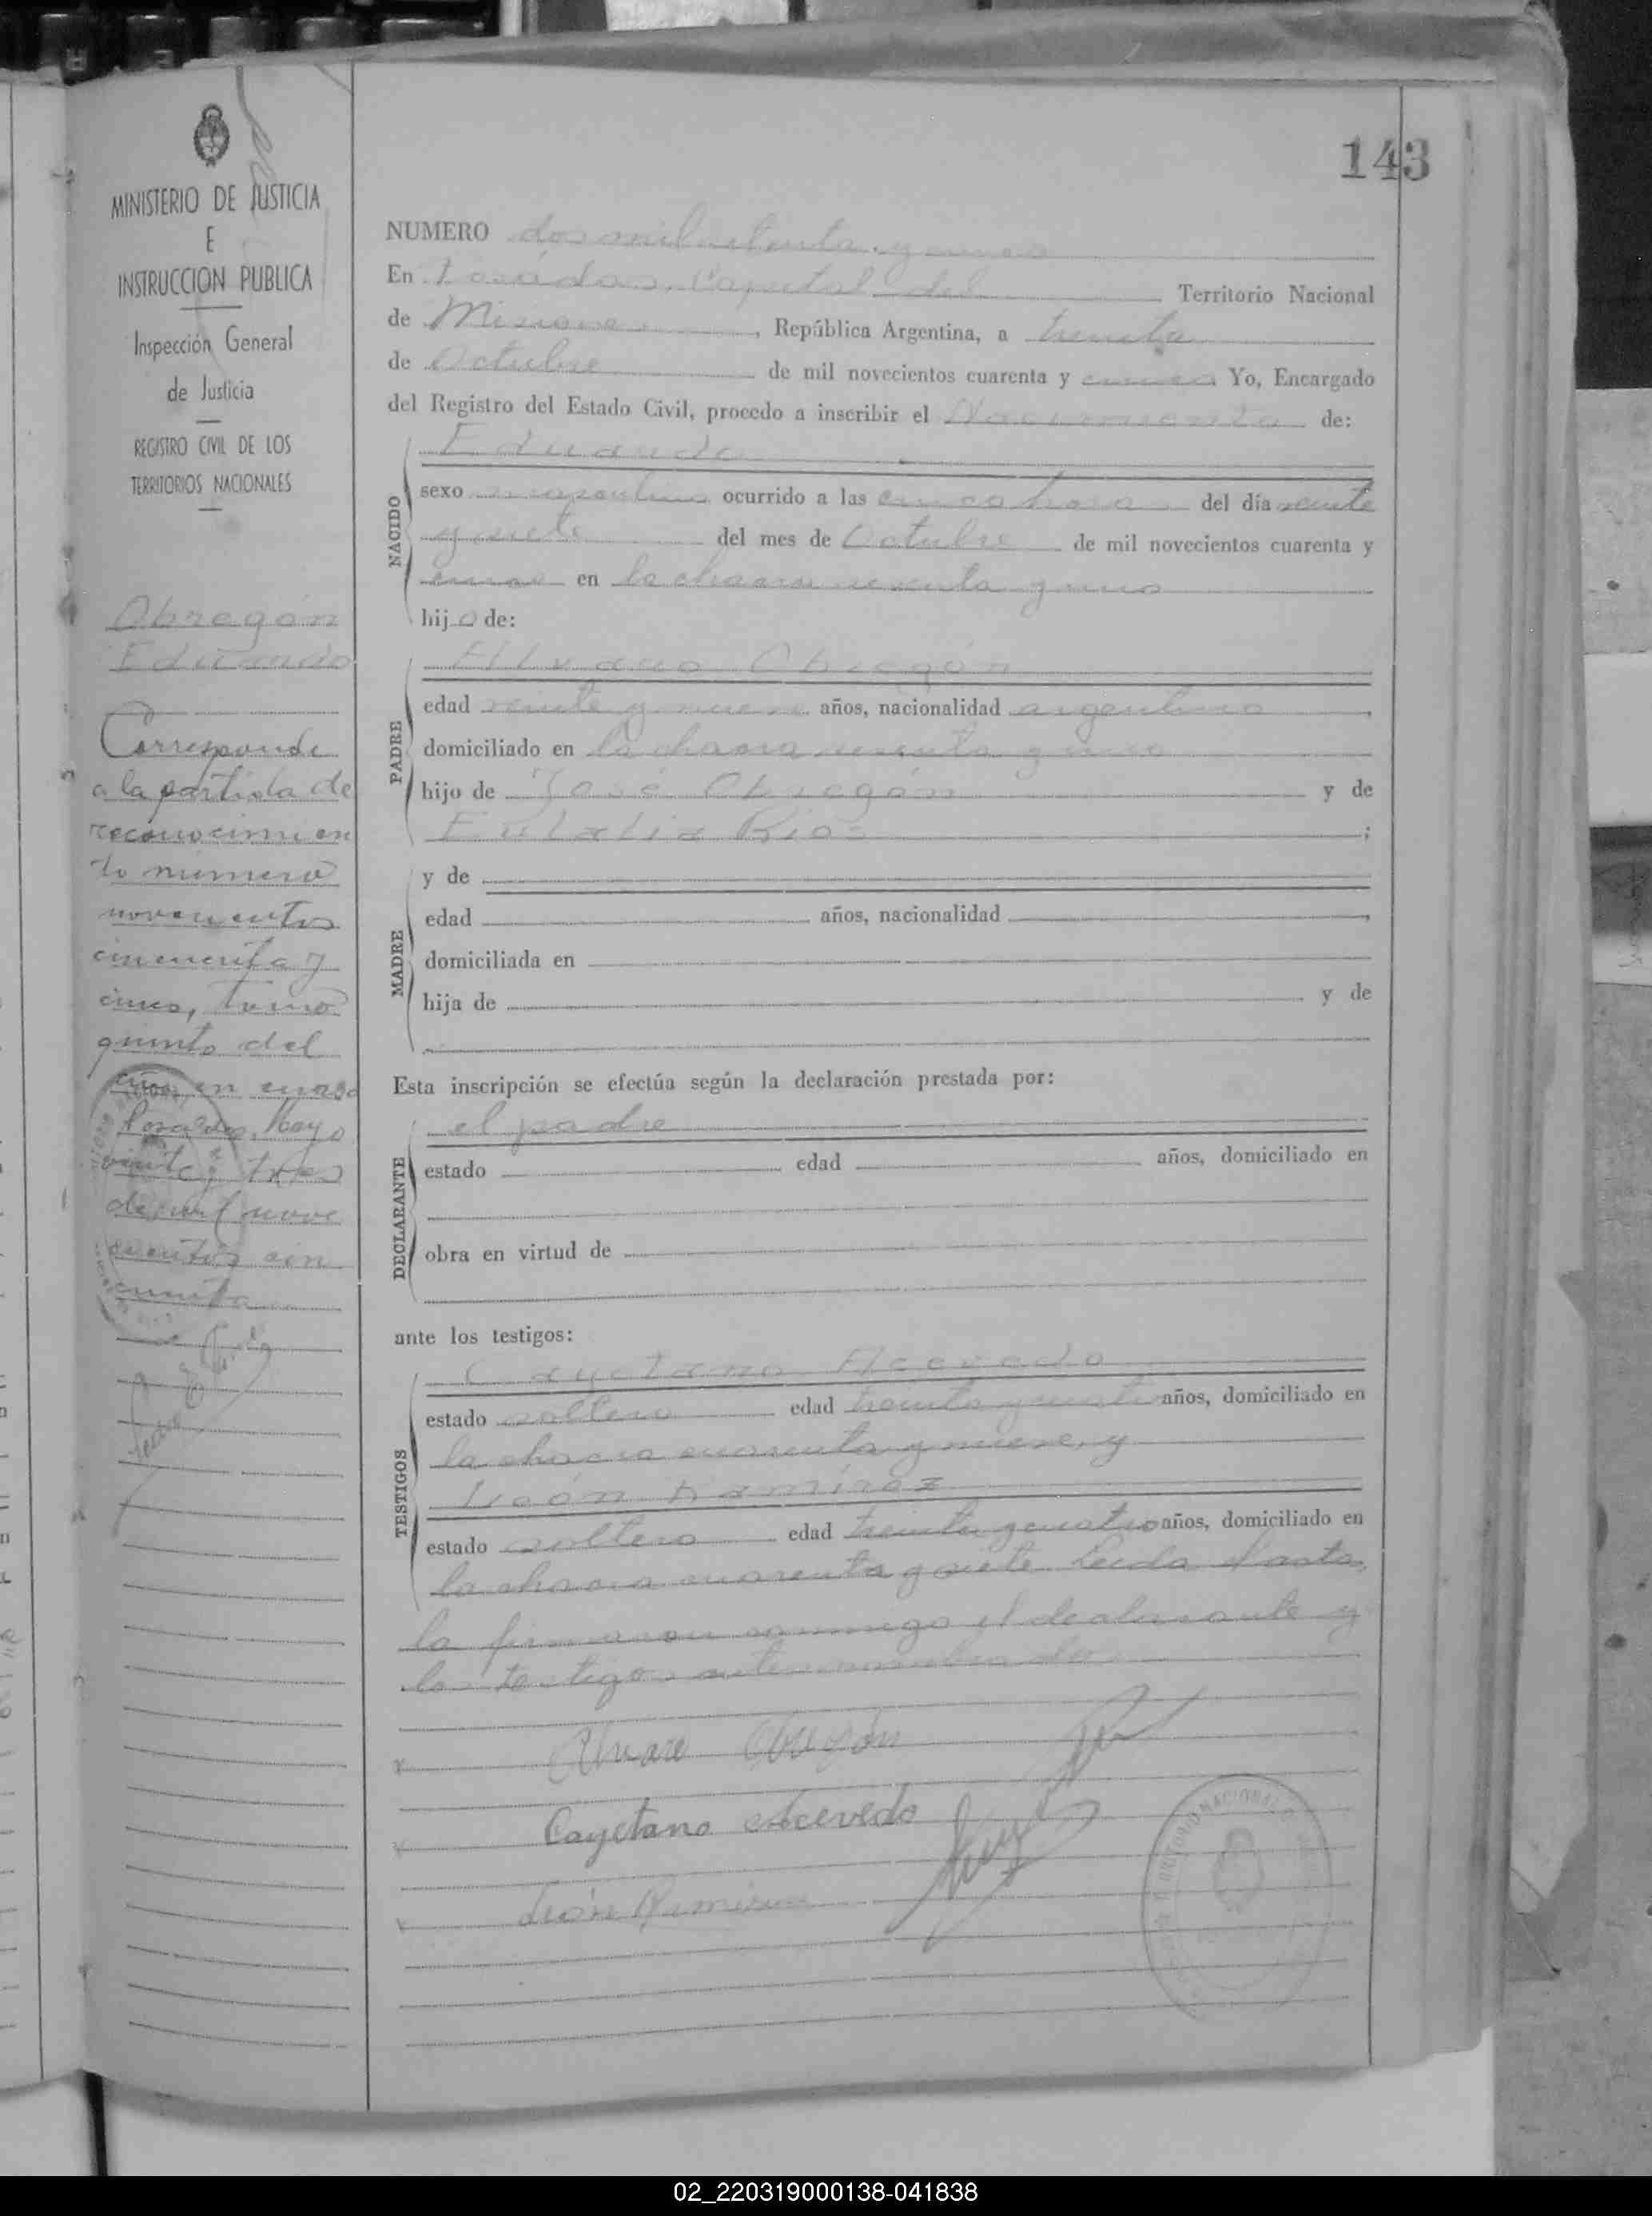 143
MINISTERIO DE JUSTICIA
E
INSTRUCCION PUBLICA
Inspección General
de Justicia
REGISTRO CIVIL DE LOS
TERRITORIOS NACIONALES
Obregón
Eduardo
Corresponde
a la partida de
reconocimien
to número
novecientos
cincuenta y
cinco, tomo
quinto del
año en curso
Posadas, Mayo
veinte y tres
de mil nove
cientos cin
cuenta
NUMERO dos mil y
En Posadas, Capital del Territorio Nacional
de Misiones, República Argentina, a treinta
de Octubre de mil novecientos cuarenta y cinco Yo, Encargado
del Registro del Estado Civil, procedo a inscribir el Nacimiento de:
NACIDO
Eduardo
sexo masculino ocurrido a las cinco horas del día veinte
y siete del mes de Octubre de mil novecientos cuarenta y
cinco en la chacra sesenta y uno
hijo de:
PADRE
Alvaro Obregón
edad veinte y nueve años, nacionalidad argentino,
domiciliado en la chacra sesenta y uno
hijo de José Obregón y de
Eulalia Rios;
MADRE
y de
edad años, nacionalidad,
domiciliada en
hija de y de
Esta inscripción se efectúa según la declaración prestada por:
DECLARANTE
el padre
estado edad años, domiciliado en
obra en virtud de
ante los testigos:
TESTIGOS
Cayetano Acevedo
estado soltero edad treinta y años, domiciliado en
la chacra cuarenta y nueve, y
León Ramírez
estado soltero edad treinta y cuatro años, domiciliado en
la chacra cuarenta y siete. Leida el acta,
la firmaron conmigo el declarante y
los testigos antes nombrados
Alvaro Obregón
Cayetano Acevedo
León Ramirez
TERRITORIO NACIONAL
02_220319000138-041838